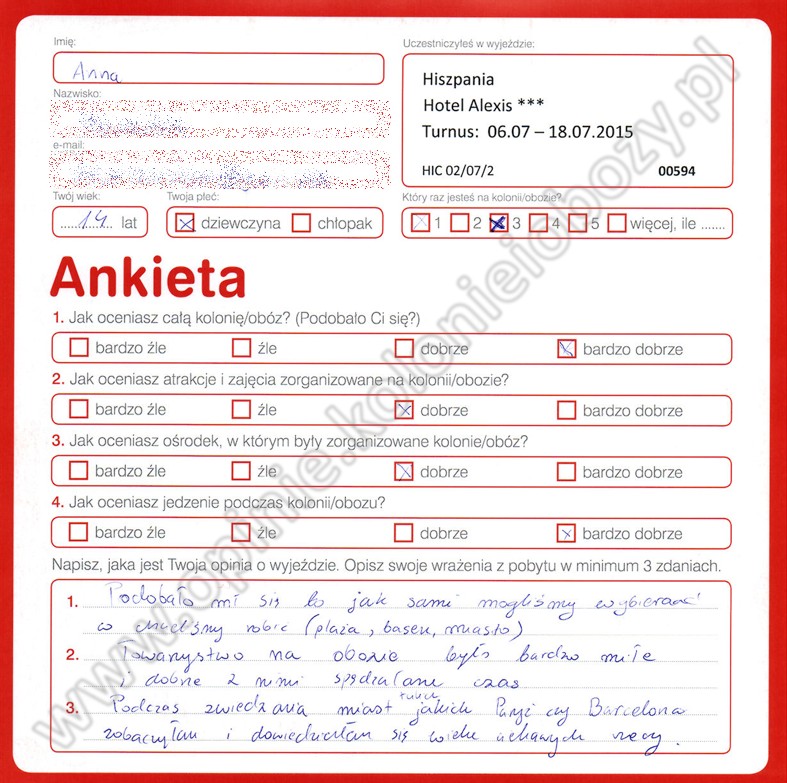 Imię:
Anna
Uczestniczyłeś w wyjeździe:
Hiszpania
Hotel Alexis ***
Turnus: 06.07 – 18.07.2015
HIC 02/07/2 00594
Nazwisko:
e-mail:
Twój wiek:
14 lat
Twoja płeć:
dziewczyna chłopak
Który raz jesteś na kolonii/obozie?
1 2 3 4 5 więcej, ile .......
Ankieta
1. Jak oceniasz całą kolonię/obóz? (Podobało Ci się?)
bardzo źle źle dobrze bardzo dobrze
2. Jak oceniasz atrakcje i zajęcia zorganizowane na kolonii/obozie?
bardzo źle źle dobrze bardzo dobrze
3. Jak oceniasz ośrodek, w którym były zorganizowane kolonie/obóz?
bardzo źle źle dobrze bardzo dobrze
4. Jak oceniasz jedzenie podczas kolonii/obozu?
bardzo źle źle dobrze bardzo dobrze
Napisz, jaka jest Twoja opinia o wyjeździe. Opisz swoje wrażenia z pobytu w minimum 3 zdaniach.
1. Podobało mi się to jak sami mogliśmy wybierać
co chcieliśmy robić (plaża, basen, miasto)
2. Towarzystwo na obozie było bardzo miłe
i dobrze z nimi spędzałam czas
3. Podczas zwiedzania miast takich jak Paryż czy Barcelona
zobaczyłam i dowiedziałam się wielu ciekawych rzeczy.
www.opinie.kolonieiobozy.pl